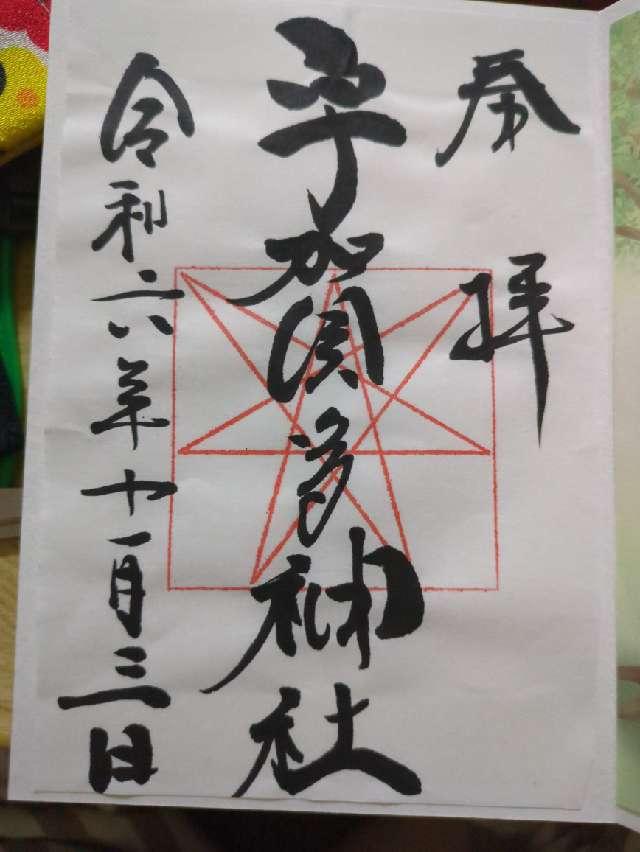 奉拝
宇賀多神社
令和六年十一月三日